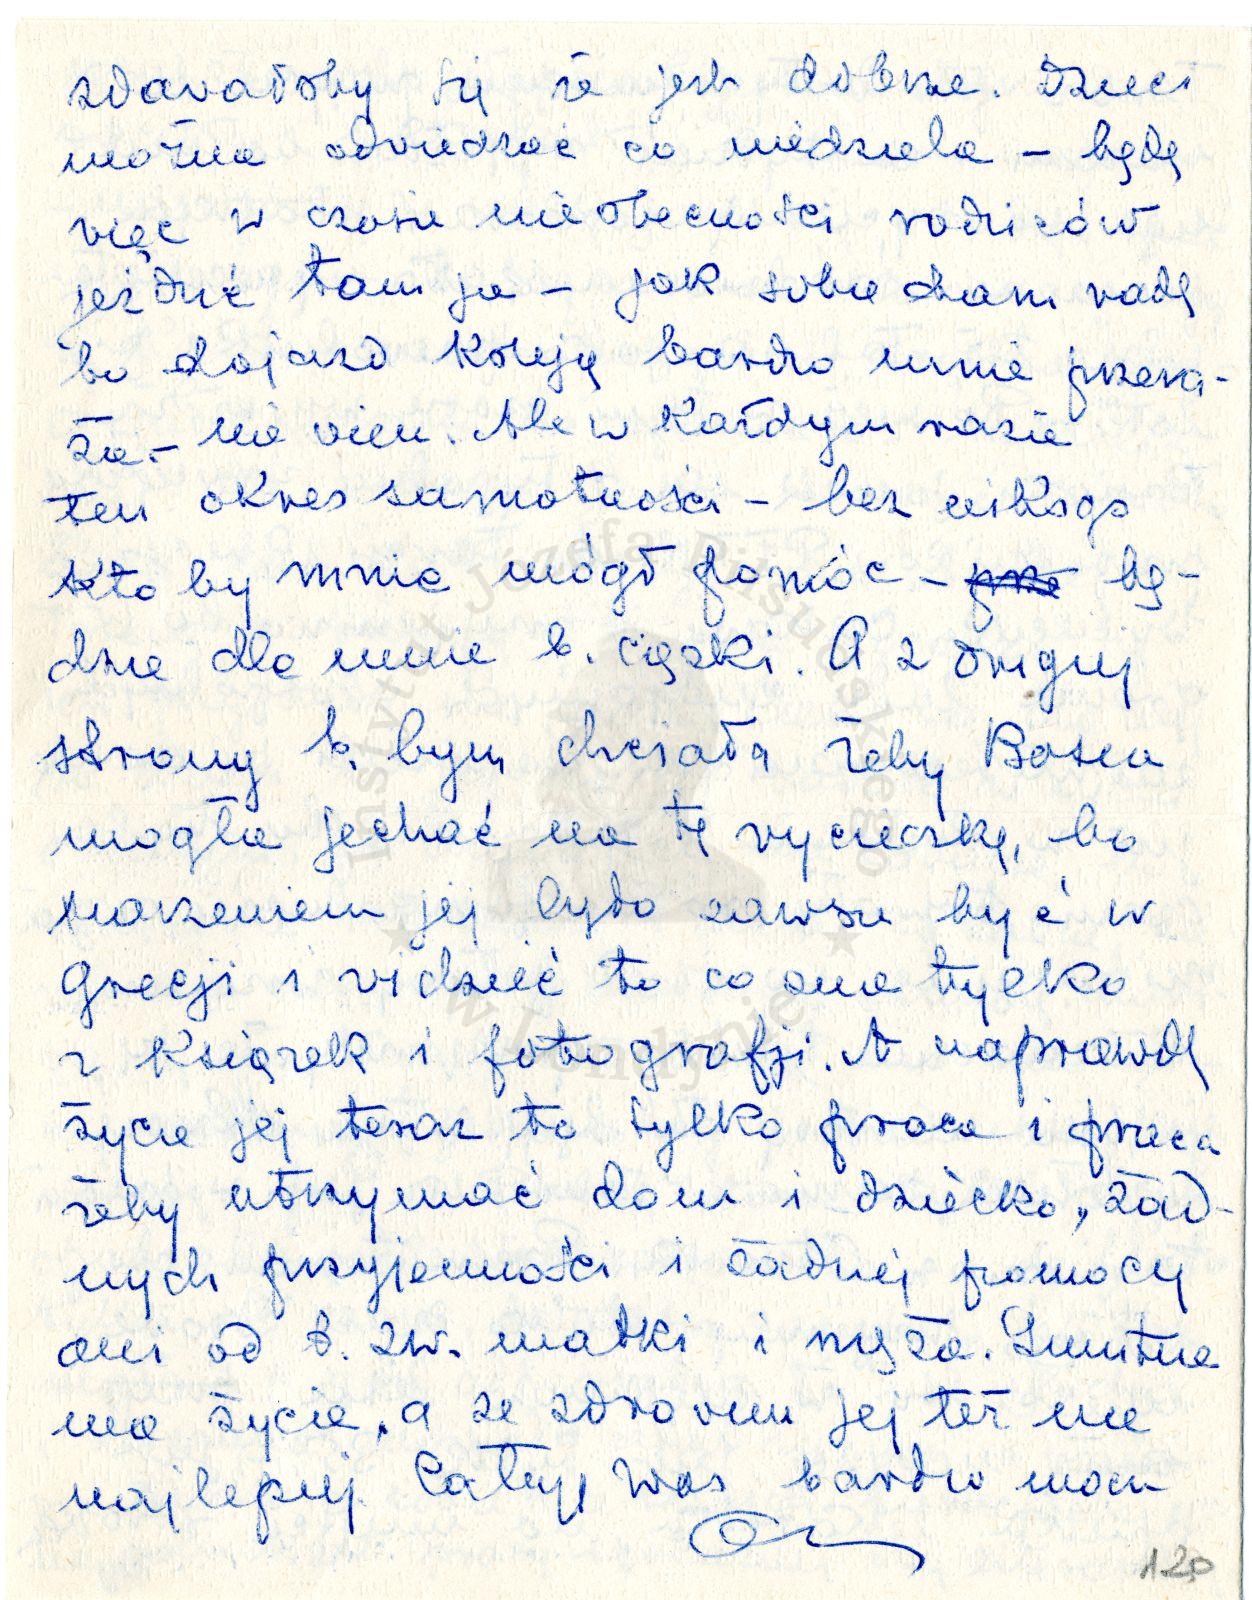 zdawałoby się że jest dobrze. Dzieci
można odwiedzać co niedziela – będę
więc w czasie nieobecności rodziców
jeździć tam ja – jak sobie dam radę
bo dojazd koleją bardzo mnie przera-
ża – nie wiem. Ale w każdym razie
ten okres samotności – bez nikogo
kto by mnie mógł pomóc – prze bę-
dzie dla mnie b. ciężki. A z drugiej
strony b. bym chciała żeby Basia
mogła jechać na tę wycieczkę, bo
marzeniem jej było zawsze być w
Grecji i widzieć to co zna tylko
z książek i fotografji. A naprawdę
życie jej teraz to tylko praca i praca
żeby utrzymać dom i dziecko, żad-
nych przyjemności i żadnej pomocy
ani od t. zw. matki i męża. Smutne
ma życie, a ze zdrowiem jej też nie
najlepiej. Całuję Was bardzo mocno
120
Instytut Józefa Piłsudskiego
w Londynie